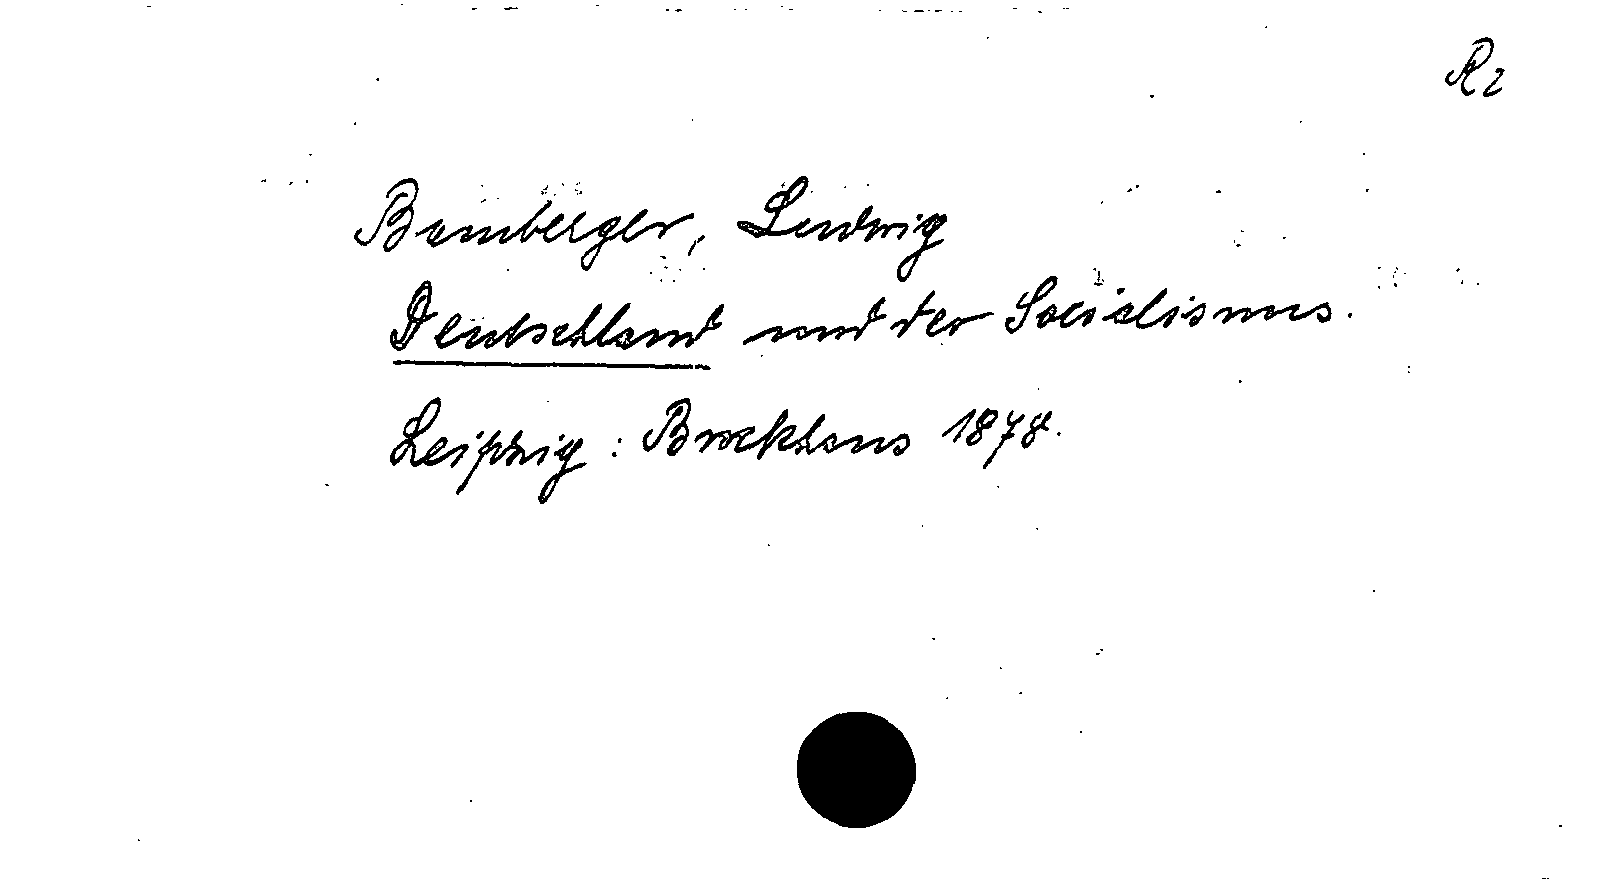 R2
Bamberger, Ludwig
Deutschland und der Socialismus.
Leipzig : Brockhaus 1878.